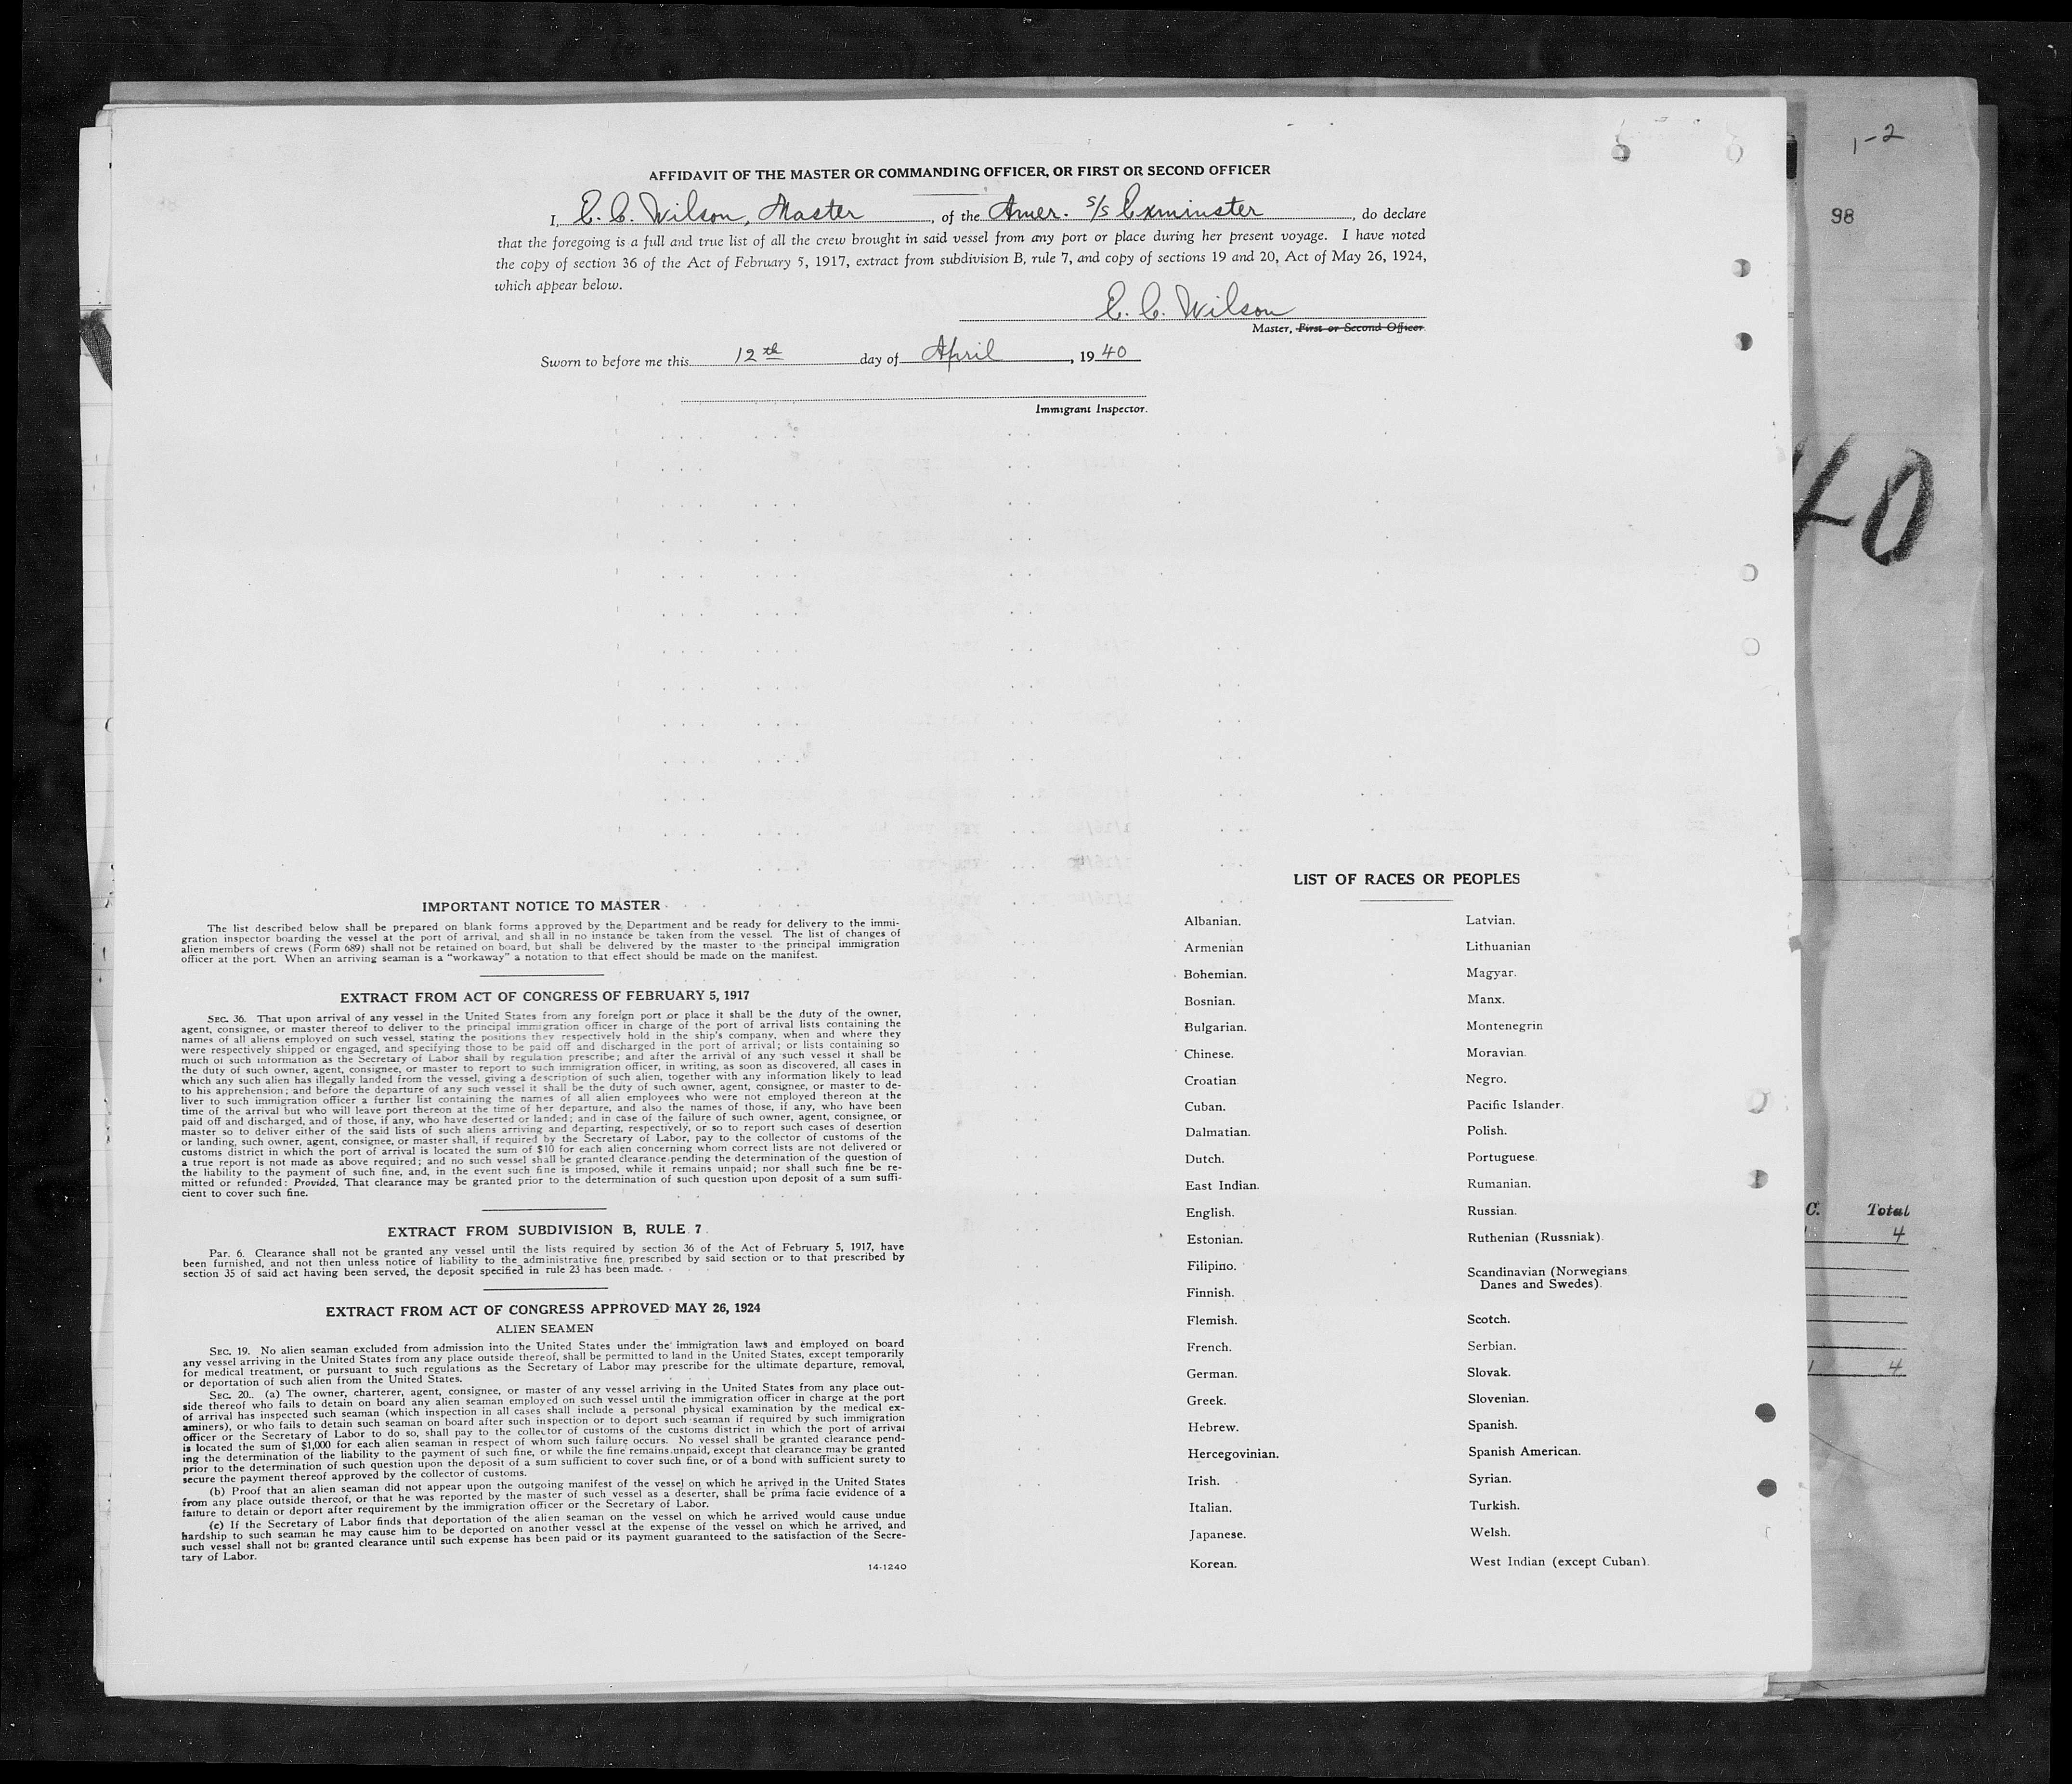 1-2
98
40
AFFIDAVIT OF THE MASTER OR COMMANDING OFFICER, OR FIRST OR SECOND OFFICER
I, E. C. Wilson, Master, of the Amer. S/S Exminster, do declare
that the foregoing is a full and true list of all the crew brought in said vessel from any port or place during her present voyage. I have noted
the copy of section 36 of the Act of February 5, 1917, extract from subdivision B, rule 7, and copy of sections 19 and 20, Act of May 26, 1924,
which appear below.
E. C. Wilson
Master, First or Second Officer.
Sworn to before me this 12th day of April, 1940
Immigrant Inspector.
IMPORTANT NOTICE TO MASTER
The list described below shall be prepared on blank forms approved by the Department and be ready for delivery to the immi-
gration inspector boarding the vessel at the port of arrival, and shall in no instance be taken from the vessel. The list of changes of
alien members of crews (Form 689) shall not be retained on board, but shall be delivered by the master to the principal immigration
officer at the port. When an arriving seaman is a "workaway" a notation to that effect should be made on the manifest.
EXTRACT FROM ACT OF CONGRESS OF FEBRUARY 5, 1917
SEC. 36. That upon arrival of any vessel in the United States from any foreign port or place it shall be the duty of the owner,
agent, consignee, or master thereof to deliver to the principal immigration officer in charge of the port of arrival lists containing the
names of all aliens employed on such vessel, stating the positions they respectively hold in the ship's company, when and where they
were respectively shipped or engaged, and specifying those to be paid off and discharged in the port of arrival; or lists containing so
much of such information as the Secretary of Labor shall by regulation prescribe; and after the arrival of any such vessel it shall be
the duty of such owner, agent, consignee, or master to report to such immigration officer, in writing, as soon as discovered, all cases in
which any such alien has illegally landed from the vessel, giving a description of such alien, together with any information likely to lead
to his apprehension; and before the departure of any such vessel it shall be the duty of such owner, agent, consignee, or master to de-
liver to such immigration officer a further list containing the names of all alien employees who were not employed thereon at the
time of the arrival but who will leave port thereon at the time of her departure, and also the names of those, if any, who have been
paid off and discharged, and of those, if any, who have deserted or landed; and in case of the failure of such owner, agent, consignee, or
master so to deliver either of the said lists of such aliens arriving and departing, respectively, or so to report such cases of desertion
or landing, such owner, agent, consignee, or master shall, if required by the Secretary of Labor, pay to the collector of customs of the
customs district in which the port of arrival is located the sum of $10 for each alien concerning whom correct lists are not delivered or
a true report is not made as above required; and no such vessel shall be granted clearance pending the determination of the question of
the liability to the payment of such fine, and, in the event such fine is imposed, while it remains unpaid; nor shall such fine be re-
mitted or refunded: Provided, That clearance may be granted prior to the determination of such question upon deposit of a sum suffi-
cient to cover such fine.
EXTRACT FROM SUBDIVISION B, RULE 7
Par. 6. Clearance shall not be granted any vessel until the lists required by section 36 of the Act of February 5, 1917, have
been furnished, and not then unless notice of liability to the administrative fine prescribed by said section or to that prescribed by
section 35 of said act having been served, the deposit specified in rule 23 has been made.
EXTRACT FROM ACT OF CONGRESS APPROVED MAY 26, 1924
ALIEN SEAMEN
SEC. 19. No alien seaman excluded from admission into the United States under the immigration laws and employed on board
any vessel arriving in the United States from any place outside thereof, shall be permitted to land in the United States, except temporarily
for medical treatment, or pursuant to such regulations as the Secretary of Labor may prescribe for the ultimate departure, removal,
or deportation of such alien from the United States.
SEC. 20. (a) The owner, charterer, agent, consignee, or master of any vessel arriving in the United States from any place out-
side thereof who fails to detain on board any alien seaman employed on such vessel until the immigration officer in charge at the port
of arrival has inspected such seaman (which inspection in all cases shall include a personal physical examination by the medical ex-
aminers), or who fails to detain such seaman on board after such inspection or to deport such seaman if required by such immigration
officer or the Secretary of Labor to do so, shall pay to the collector of customs of the customs district in which the port of arrival
is located the sum of $1,000 for each alien seaman in respect of whom such failure occurs. No vessel shall be granted clearance pend-
ing the determination of the liability to the payment of such fine, or while the fine remains unpaid, except that clearance may be granted
prior to the determination of such question upon the deposit of a sum sufficient to cover such fine, or of a bond with sufficient surety to
secure the payment thereof approved by the collector of customs.
(b) Proof that an alien seaman did not appear upon the outgoing manifest of the vessel on which he arrived in the United States
from any place outside thereof, or that he was reported by the master of such vessel as a deserter, shall be prima facie evidence of a
failure to detain or deport after requirement by the immigration officer or the Secretary of Labor.
(c) If the Secretary of Labor finds that deportation of the alien seaman on the vessel on which he arrived would cause undue
hardship to such seaman he may cause him to be deported on another vessel at the expense of the vessel on which he arrived, and
such vessel shall not be granted clearance until such expense has been paid or its payment guaranteed to the satisfaction of the Secre-
tary of Labor.
14-1240
LIST OF RACES OR PEOPLES
Albanian.
Armenian
Bohemian.
Bosnian.
Bulgarian.
Chinese.
Croatian
Cuban.
Dalmatian.
Dutch.
East Indian.
English.
Estonian.
Filipino.
Finnish.
Flemish.
French.
German.
Greek.
Hebrew.
Hercegovinian.
Irish.
Italian.
Japanese.
Korean.
Latvian.
Lithuanian
Magyar.
Manx.
Montenegrin
Moravian.
Negro.
Pacific Islander.
Polish.
Portuguese.
Rumanian.
Russian.
Ruthenian (Russniak).
Scandinavian (Norwegians
Danes and Swedes).
Scotch.
Serbian.
Slovak.
Slovenian.
Spanish.
Spanish American.
Syrian.
Turkish.
Welsh.
West Indian (except Cuban).
C. Total
4
1 4